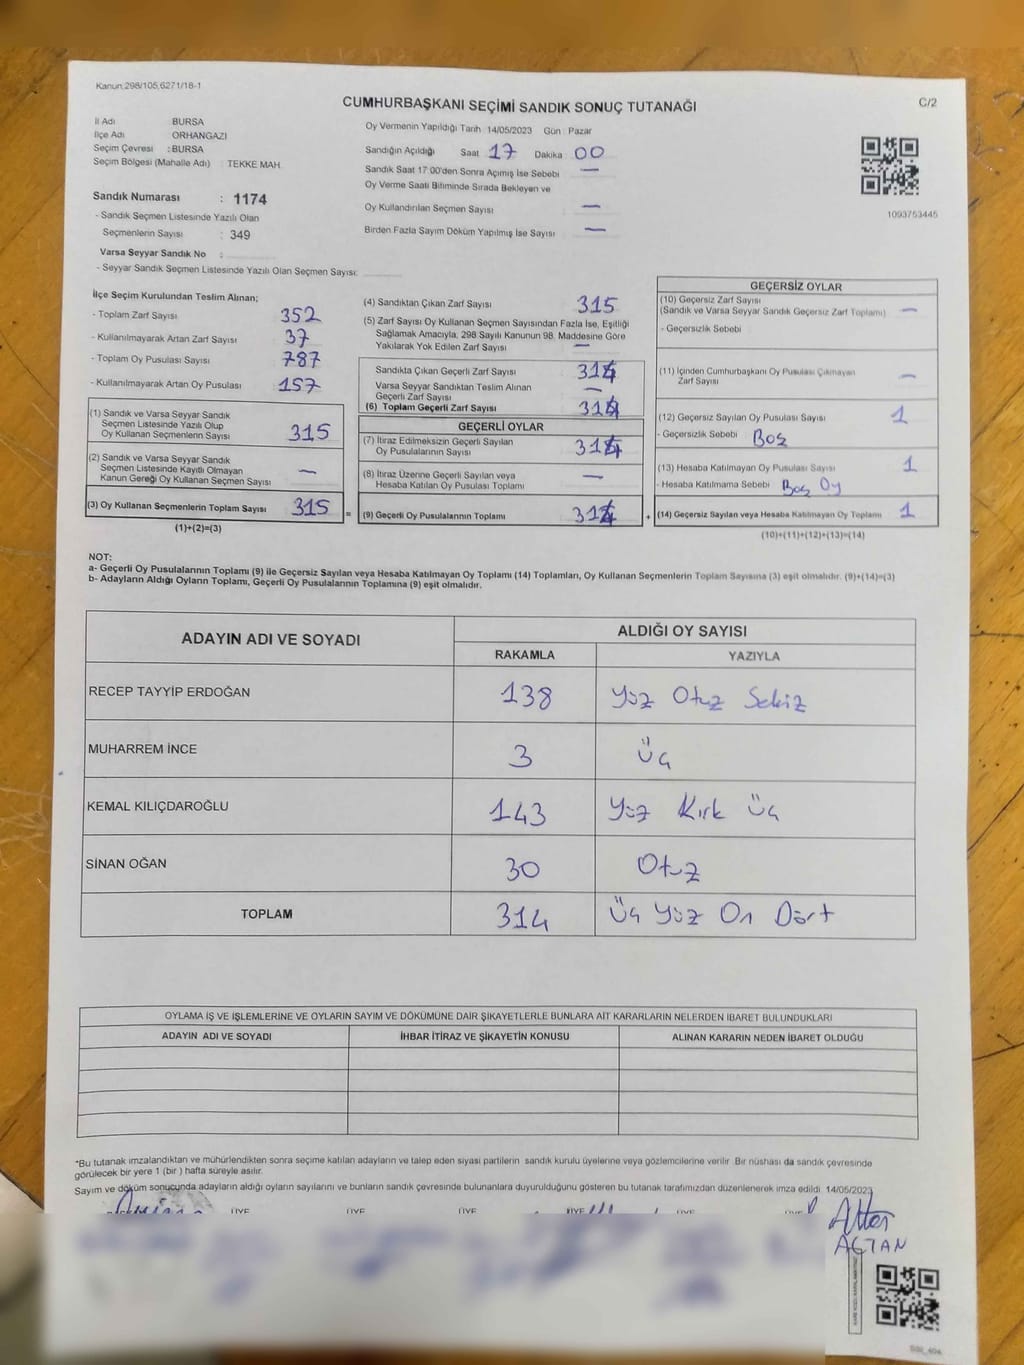 Kanun:298/105,6271/18-1
CUMHURBAŞKANI SEÇİMİ SANDIK SONUÇ TUTANAĞI
C/2
İl Adı BURSA
İlçe Adı ORHANGAZİ
Seçim Çevresi : BURSA
Seçim Bölgesi (Mahalle Adı) TEKKE MAH.
Sandık Numarası : 1174
- Sandık Seçmen Listesinde Yazılı Olan
Seçmenlerin Sayısı : 349
Varsa Seyyar Sandık No :
- Seyyar Sandık Seçmen Listesinde Yazılı Olan Seçmen Sayısı:
Oy Vermenin Yapıldığı Tarih 14/05/2023 Gün Pazar
Sandığın Açıldığı Saat 17 Dakika 00
Sandık Saat 17:00'den Sonra Açılmış İse Sebebi —
Oy Verme Saati Bitiminde Sırada Bekleyen ve
Oy Kullandırılan Seçmen Sayısı —
Birden Fazla Sayım Döküm Yapılmış İse Sayısı —
1093753445
İlçe Seçim Kurulundan Teslim Alınan;
- Toplam Zarf Sayısı 352
- Kullanılmayarak Artan Zarf Sayısı 37
- Toplam Oy Pusulası Sayısı 787
- Kullanılmayarak Artan Oy Pusulası 157
(1) Sandık ve Varsa Seyyar Sandık
Seçmen Listesinde Yazılı Olup
Oy Kullanan Seçmenlerin Sayısı 315
(2) Sandık ve Varsa Seyyar Sandık
Seçmen Listesinde Kayıtlı Olmayan
Kanun Gereği Oy Kullanan Seçmen Sayısı —
(3) Oy Kullanan Seçmenlerin Toplam Sayısı 315
(1)+(2)=(3)
=
(4) Sandıktan Çıkan Zarf Sayısı 315
(5) Zarf Sayısı Oy Kullanan Seçmen Sayısından Fazla İse, Eşitliği
Sağlamak Amacıyla, 298 Sayılı Kanunun 98. Maddesine Göre
Yakılarak Yok Edilen Zarf Sayısı —
Sandıkta Çıkan Geçerli Zarf Sayısı 314
Varsa Seyyar Sandıktan Teslim Alınan
Geçerli Zarf Sayısı —
(6) Toplam Geçerli Zarf Sayısı 314
GEÇERLİ OYLAR
(7) İtiraz Edilmeksizin Geçerli Sayılan
Oy Pusulalarının Sayısı 314
(8) İtiraz Üzerine Geçerli Sayılan veya
Hesaba Katılan Oy Pusulası Toplamı —
(9) Geçerli Oy Pusulalarının Toplamı 314
+
GEÇERSİZ OYLAR
(10) Geçersiz Zarf Sayısı
(Sandık ve Varsa Seyyar Sandık Geçersiz Zarf Toplamı) —
- Geçersizlik Sebebi
(11) İçinden Cumhurbaşkanı Oy Pusulası Çıkmayan
Zarf Sayısı —
(12) Geçersiz Sayılan Oy Pusulası Sayısı 1
- Geçersizlik Sebebi Boş
(13) Hesaba Katılmayan Oy Pusulası Sayısı 1
- Hesaba Katılmama Sebebi Boş Oy
(14) Geçersiz Sayılan veya Hesaba Katılmayan Oy Toplamı 1
(10)+(11)+(12)+(13)=(14)
NOT:
a- Geçerli Oy Pusulalarının Toplamı (9) ile Geçersiz Sayılan veya Hesaba Katılmayan Oy Toplamı (14) Toplamları, Oy Kullanan Seçmenlerin Toplam Sayısına (3) eşit olmalıdır. (9)+(14)=(3)
b- Adayların Aldığı Oyların Toplamı, Geçerli Oy Pusulalarının Toplamına (9) eşit olmalıdır.
ADAYIN ADI VE SOYADI
ALDIĞI OY SAYISI
RAKAMLA YAZIYLA
RECEP TAYYİP ERDOĞAN 138 Yüz Otuz Sekiz
MUHARREM İNCE 3 Üç
KEMAL KILIÇDAROĞLU 143 Yüz Kırk Üç
SİNAN OĞAN 30 Otuz
TOPLAM 314 Üç Yüz On Dört
OYLAMA İŞ VE İŞLEMLERİNE VE OYLARIN SAYIM VE DÖKÜMÜNE DAİR ŞİKAYETLERLE BUNLARA AİT KARARLARIN NELERDEN İBARET BULUNDUKLARI
ADAYIN ADI VE SOYADI İHBAR İTİRAZ VE ŞİKAYETİN KONUSU ALINAN KARARIN NEDEN İBARET OLDUĞU
*Bu tutanak imzalandıktan ve mühürlendikten sonra seçime katılan adayların ve talep eden siyasi partilerin sandık kurulu üyelerine veya gözlemcilerine verilir. Bir nüshası da sandık çevresinde
görülecek bir yere 1 (bir) hafta süreyle asılır.
Sayım ve döküm sonucunda adayların aldığı oyların sayılarını ve bunların sandık çevresinde bulunanlara duyurulduğunu gösteren bu tutanak tarafımızdan düzenlenerek imza edildi. 14/05/2023
ÜYE ÜYE ÜYE ÜYE ÜYE
AÇTAN